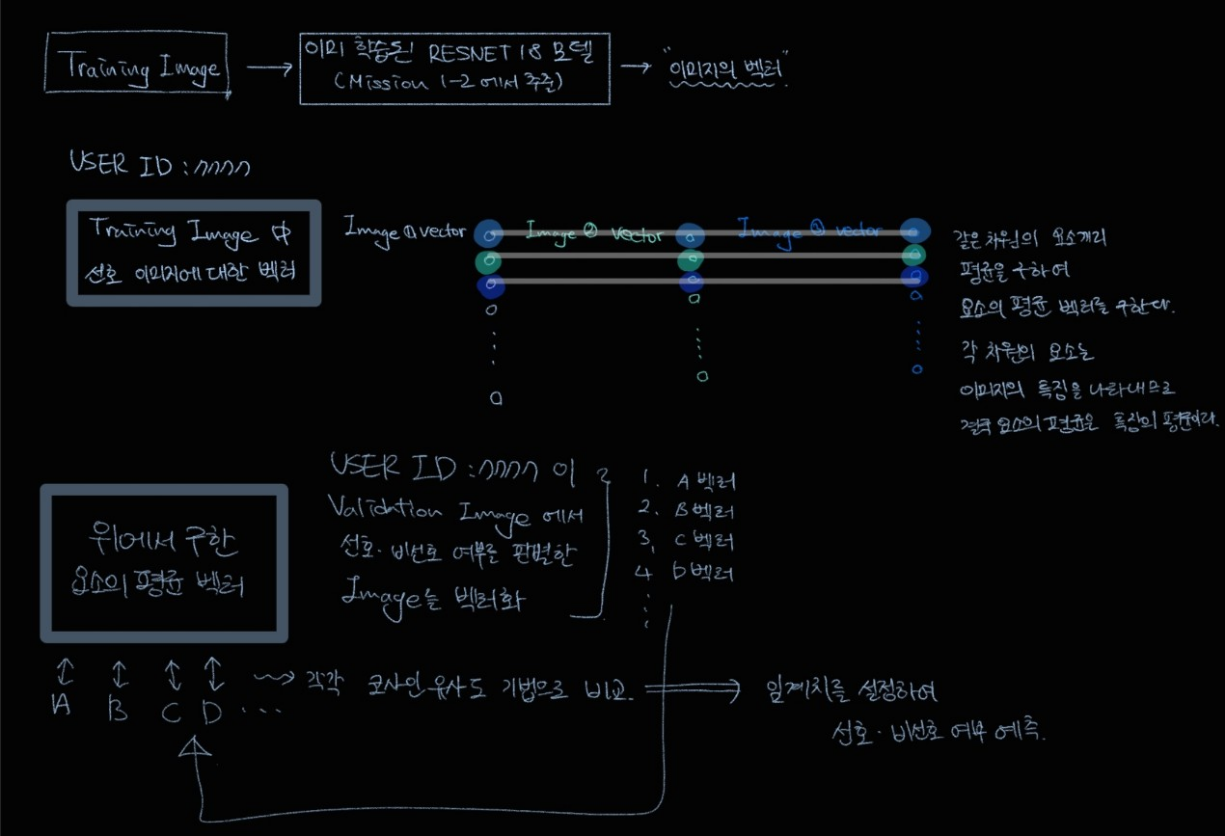 Training Image
이미 학습된 RESNET 18 모델
(Mission 1-2 에서 추출)
"이미지의 벡터"
USER ID : nnnn
Training Image 中
선호 이미지에 대한 벡터
Image ① vector
Image ② vector
Image ③ vector
같은 차원의 요소끼리
평균을 구하여
요소의 평균 벡터를 구한다.
각 차원의 요소는
이미지의 특징을 나타내므로
결국 요소의 평균은 특징의 평균이다.
위에서 구한
요소의 평균 벡터
USER ID : nnnn 이
Validation Image 에서
선호·비선호 여부를 판별한
Image는 벡터화
1. A 벡터
2. B 벡터
3. C 벡터
4 D 벡터
A B C D ...
각각 코사인 유사도 기법으로 비교.
임계치를 설정하여
선호·비선호 여부 예측.